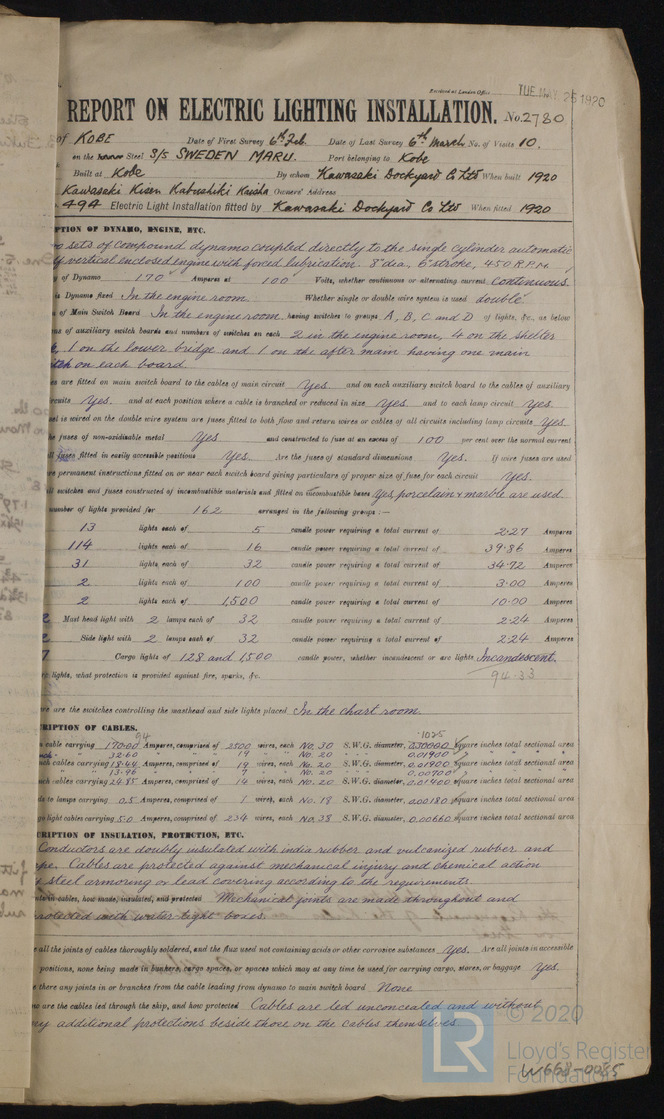 Received at London Office TUE MAY 25 1920
REPORT ON ELECTRIC LIGHTING INSTALLATION. No. 2780
of KOBE Date of First Survey 6th Feb. Date of Last Survey 6th March No. of Visits 10.
on the Steel S/S SWEDEN MARU. Port belonging to Kobe
Built at Kobe By whom Kawasaki Dockyard Co Ltd When built 1920
Kawasaki Kisen Kabushiki Kaisha Owners' Address
494 Electric Light Installation fitted by Kawasaki Dockyard Co Ltd When fitted 1920
PTION OF DYNAMO, ENGINE, ETC.
o sets of compound dynamo coupled directly to the single cylinder automatic
y vertical enclosed engine with forced lubrication. 8" dia, 6" stroke, 450 R.P.M.
y of Dynamo 170 Amperes at 100 Volts, whether continuous or alternating current Continuous
is Dynamo fixed In the engine room. Whether single or double wire system is used double
n of Main Switch Board In the engine room, having switches to groups A, B, C and D of lights, &c., as below
ns of auxiliary switch boards and numbers of switches on each 2 in the engine room, 4 on the shelter
1 on the lower bridge and 1 on the after main having one main
itch on each board
es are fitted on main switch board to the cables of main circuit Yes and on each auxiliary switch board to the cables of auxiliary
rcuits Yes. and at each position where a cable is branched or reduced in size Yes and to each lamp circuit Yes.
sel is wired on the double wire system are fuses fitted to both flow and return wires or cables of all circuits including lamp circuits Yes.
he fuses of non-oxidizable metal Yes and constructed to fuse at an excess of 100 per cent over the normal current
ll fuses fitted in easily accessible positions Yes. Are the fuses of standard dimensions Yes. If wire fuses are used
re permanent instructions fitted on or near each switch board giving particulars of proper size of fuse for each circuit Yes.
ll switches and fuses constructed of incombustible materials and fitted on incombustible bases Yes, porcelain & marble are used.
number of lights provided for 162 arranged in the following groups :—
13 lights each of 5 candle power requiring a total current of 2.27 Amperes
114 lights each of 16 candle power requiring a total current of 39.86 Amperes
31 lights each of 32 candle power requiring a total current of 34.72 Amperes
2 lights each of 100 candle power requiring a total current of 3.00 Amperes
2 lights each of 1,500 candle power requiring a total current of 10.00 Amperes
2 Mast head light with 2 lamps each of 32 candle power requiring a total current of 2.24 Amperes
2 Side light with 2 lamps each of 32 candle power requiring a total current of 2.24 Amperes
7 Cargo lights of 128 and 1,500 candle power, whether incandescent or arc lights Incandescent.
94.33
lights, what protection is provided against fire, sparks, &c.
re are the switches controlling the masthead and side lights placed In the chart room.
CRIPTION OF CABLES.
94 .1025
cable carrying 170.00 Amperes, comprised of 2500 wires, each No. 30 S.W.G. diameter, 0.30000 square inches total sectional area
32.60 19 No. 20 0.01900
nch cables carrying 18.44 Amperes, comprised of 19 wires, each No. 20 S.W.G. diameter, 0.01900 square inches total sectional area
13.96 7 No. 20 0.00700
nch cables carrying 24.85 Amperes, comprised of 14 wires, each No. 20 S.W.G. diameter, 0.01400 square inches total sectional area
ds to lamps carrying 0.5 Amperes, comprised of 1 wires, each No. 18 S.W.G. diameter, 0.00180 square inches total sectional area
go light cables carrying 5.0 Amperes, comprised of 234 wires, each No. 38 S.W.G. diameter, 0.00660 square inches total sectional area
CRIPTION OF INSULATION, PROTECTION, ETC.
Conductors are doubly insulated with india rubber and vulcanized rubber and
pe. Cables are protected against mechanical injury and chemical action
y steel armoring or lead covering according to the requirements.
nts in cables, how made, insulated, and protected Mechanical joints are made throughout and
rotected with water-tight boxes.
e all the joints of cables thoroughly soldered, and the flux used not containing acids or other corrosive substances Yes. Are all joints in accessible
positions, none being made in bunkers, cargo spaces, or spaces which may at any time be used for carrying cargo, stores, or baggage Yes.
e there any joints in or branches from the cable leading from dynamo to main switch board None
ow are the cables led through the ship, and how protected Cables are led unconcealed and without
ny additional protections beside those on the cables themselves.
© 2020
LR Lloyd's Register
Foundation
W668-0085